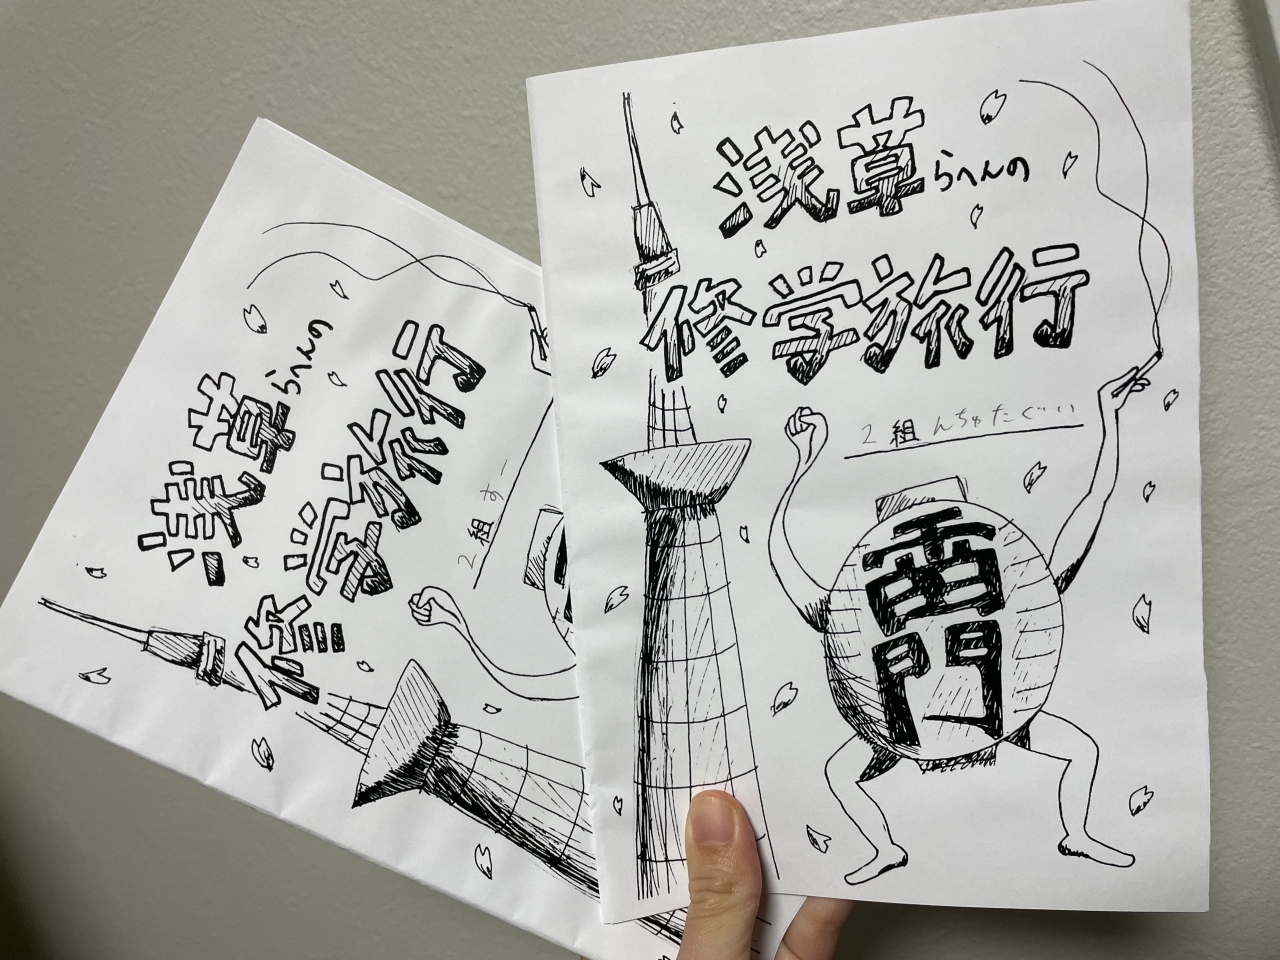 浅草らへんの
修学旅行
2組 んちゅたぐい
雷門
浅草らへんの
修学旅行
2組 すー